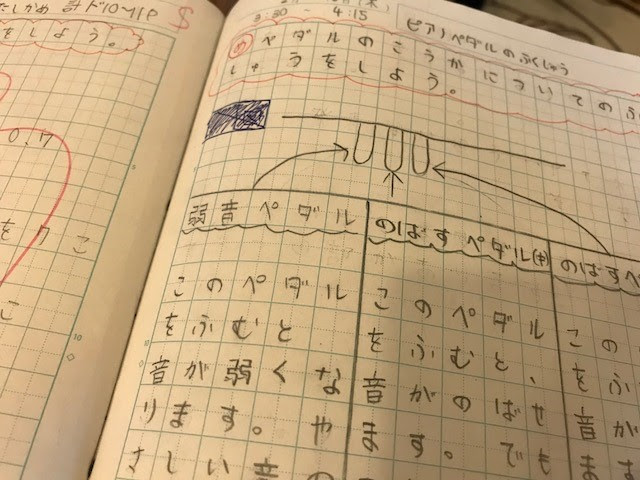 3:30 - 4:15
ピアノペダルのふくしゅう
め ペダルのこうかについてのふ
しゅうをしよう。
弱音ペダル
このペダル
をふむと
音が弱くな
ります。や
さしい音の
のばすペダル(中)
このペダル
をふむと、
音がのばせ
ます。でき
のばすペ
この
をふ
音が
ます
しよう。
0.7